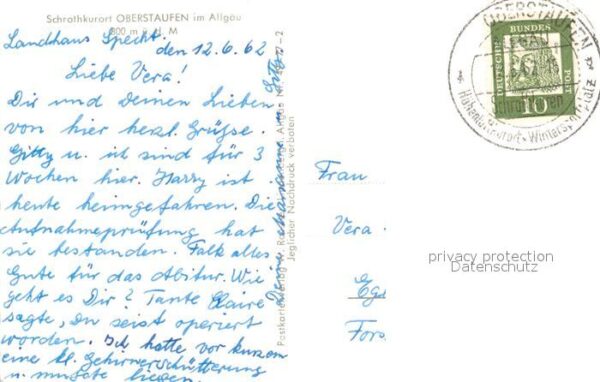 Schrothkurort OBERSTAUFEN im Allgäu
800 m ü. N. M
Landhaus Specht. den 12.6.62
Liebe Vera!
Dir und Deinen Lieben
von hier herzl. Grüße.
Gitty u. ich sind für 3
Wochen hier. Harry ist
heute heimgefahren. Die
Aufnahmeprüfung hat
sie bestanden. Falk alles
Gute für das Abitur. Wie
geht es Dir? Tante Claire
sagte, Du seist operiert
worden. Ich hatte vor kurzem
eine kl. Gehirnerschütterung
u. mußte liegen.
Deine Marianne
Jeglicher Nachdruck verboten
OBERSTAUFEN
DEUTSCHE BUNDES POST
10
Frau
Vera
Fors
privacy protection
Datenschutz